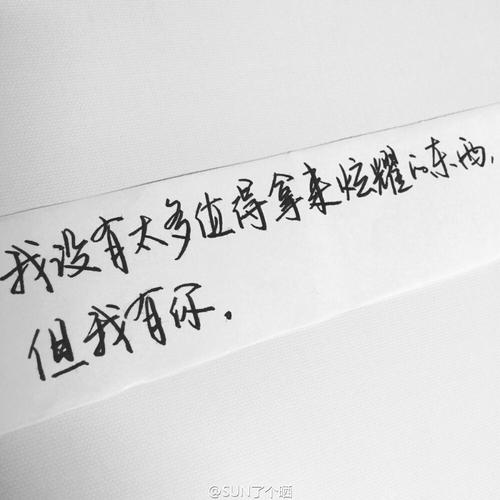 我没有太多值得拿来炫耀的东西，
但我有你．
@SUN了个晒